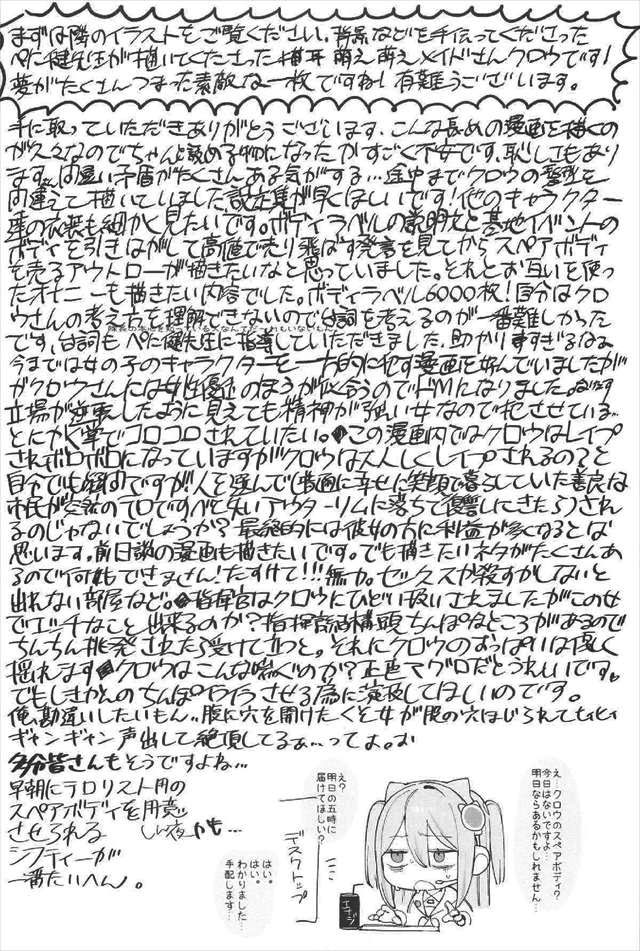 まずは隣のイラストをご覧ください。背景などを手伝ってくださった
ペに健先生が描いてくださった猫耳萌え萌えメイドさんクロウです!
夢がたくさんつまった素敵な一枚ですね!有難うございます。
手に取っていただきありがとうございます、こんな長めの漫画を描くの
が久々なのでちゃんと読める物になったかすごく不安です、恥しくもあり
ます。間違い矛盾がたくさんある気がする…途中までクロウの髪型を
間違えて描いていました設定集が早くほしいです!他のキャラクター
達の衣装も細かく見たいです。ボディラベルの説明文と基地イベントの
ボディを引きはがして高値で売り飛ばす発言を見てからスペアボディ
を売るアウトローが描きたいなと思っていました。それとお互いを使っ
たオナニーも描きたい内容でした。ボディラベル6000枚!自分はクロ
ウさんの考え方を理解できないので台詞を考えるのが一番難しかった
です、台詞もペに健先生に指導していただきました、助かりますすぎるなぁ
今までは女の子のキャラクターを一方的に犯す漫画を好んでいましたが
がクロウさんには女性優位のほうが似合うのでドMになりました。
立場が逆転したように見えても精神が強い女なので犯させている…
とにかく掌でコロコロされていたい。この漫画内ではクロウはレイプ
されボロボロになっていますがクロウは大人しくレイプされるの?と
自分でも疑問ですが人を選んで
市民が
るのじゃないでしょうか?最終的には彼女の方に利益が多くなるとは
思います。前日談の漫画も描きたいです。でも描きたいネタがたくさんあ
るので何もできません!たすけて!!!無力。セックスか殺すかしないと
出れない部屋など。指揮官はクロウにひどい扱いされましたがこの女
でエッチなこと出来るのか?指揮官
ちんちん挑発されたら受けて立つと。それにクロウのおっぱいは優しく
揺れます クロウはこんな喘ぐのか?正直マグロだとうれしいです。
でもしきかんのちんぽイライラさせる為に演技してほしいのです。
俺、勘違いしたいもん、腹に穴を開けたくそ女が股の穴ほじられて
ギャンギャン声出して絶頂してるぁ…ってよ。お
多分皆さんもそうですよね…
早朝にテロリスト用の
スペアボディを用意
させられる
シフティーが
一番たいへん。
しん夜かも…
え…クロウのスペアボディ?
今日はないですよ…
明日ならあるかもしれません…
え?
明日の五時に
届けてほしい?
デスクトップ
はい。
はい。
わかりました…
手配します…
エナジ